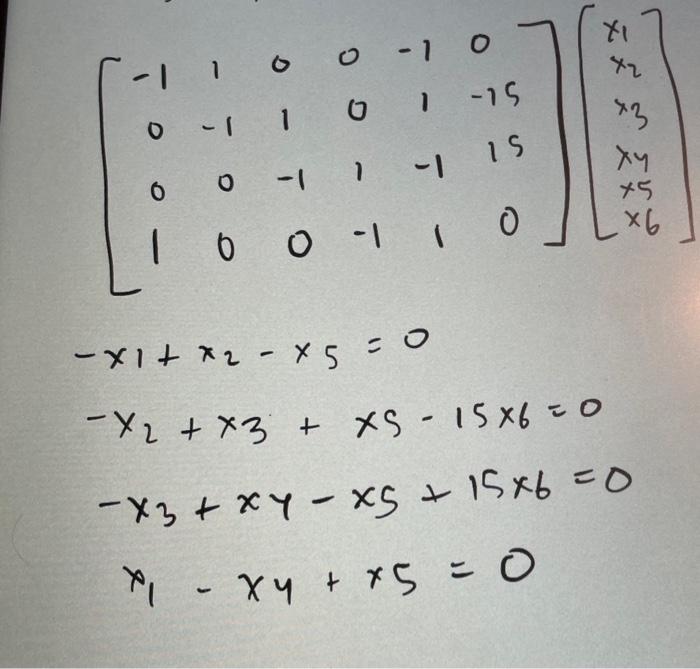 -1 1 0 0 -1 0 x1
0 -1 1 0 1 -15 x2
0 0 -1 1 -1 15 x3
1 0 0 -1 1 0 x4
x5
x6
-x1 + x2 - x5 = 0
-x2 + x3 + x5 - 15x6 = 0
-x3 + x4 - x5 + 15x6 = 0
x1 - x4 + x5 = 0